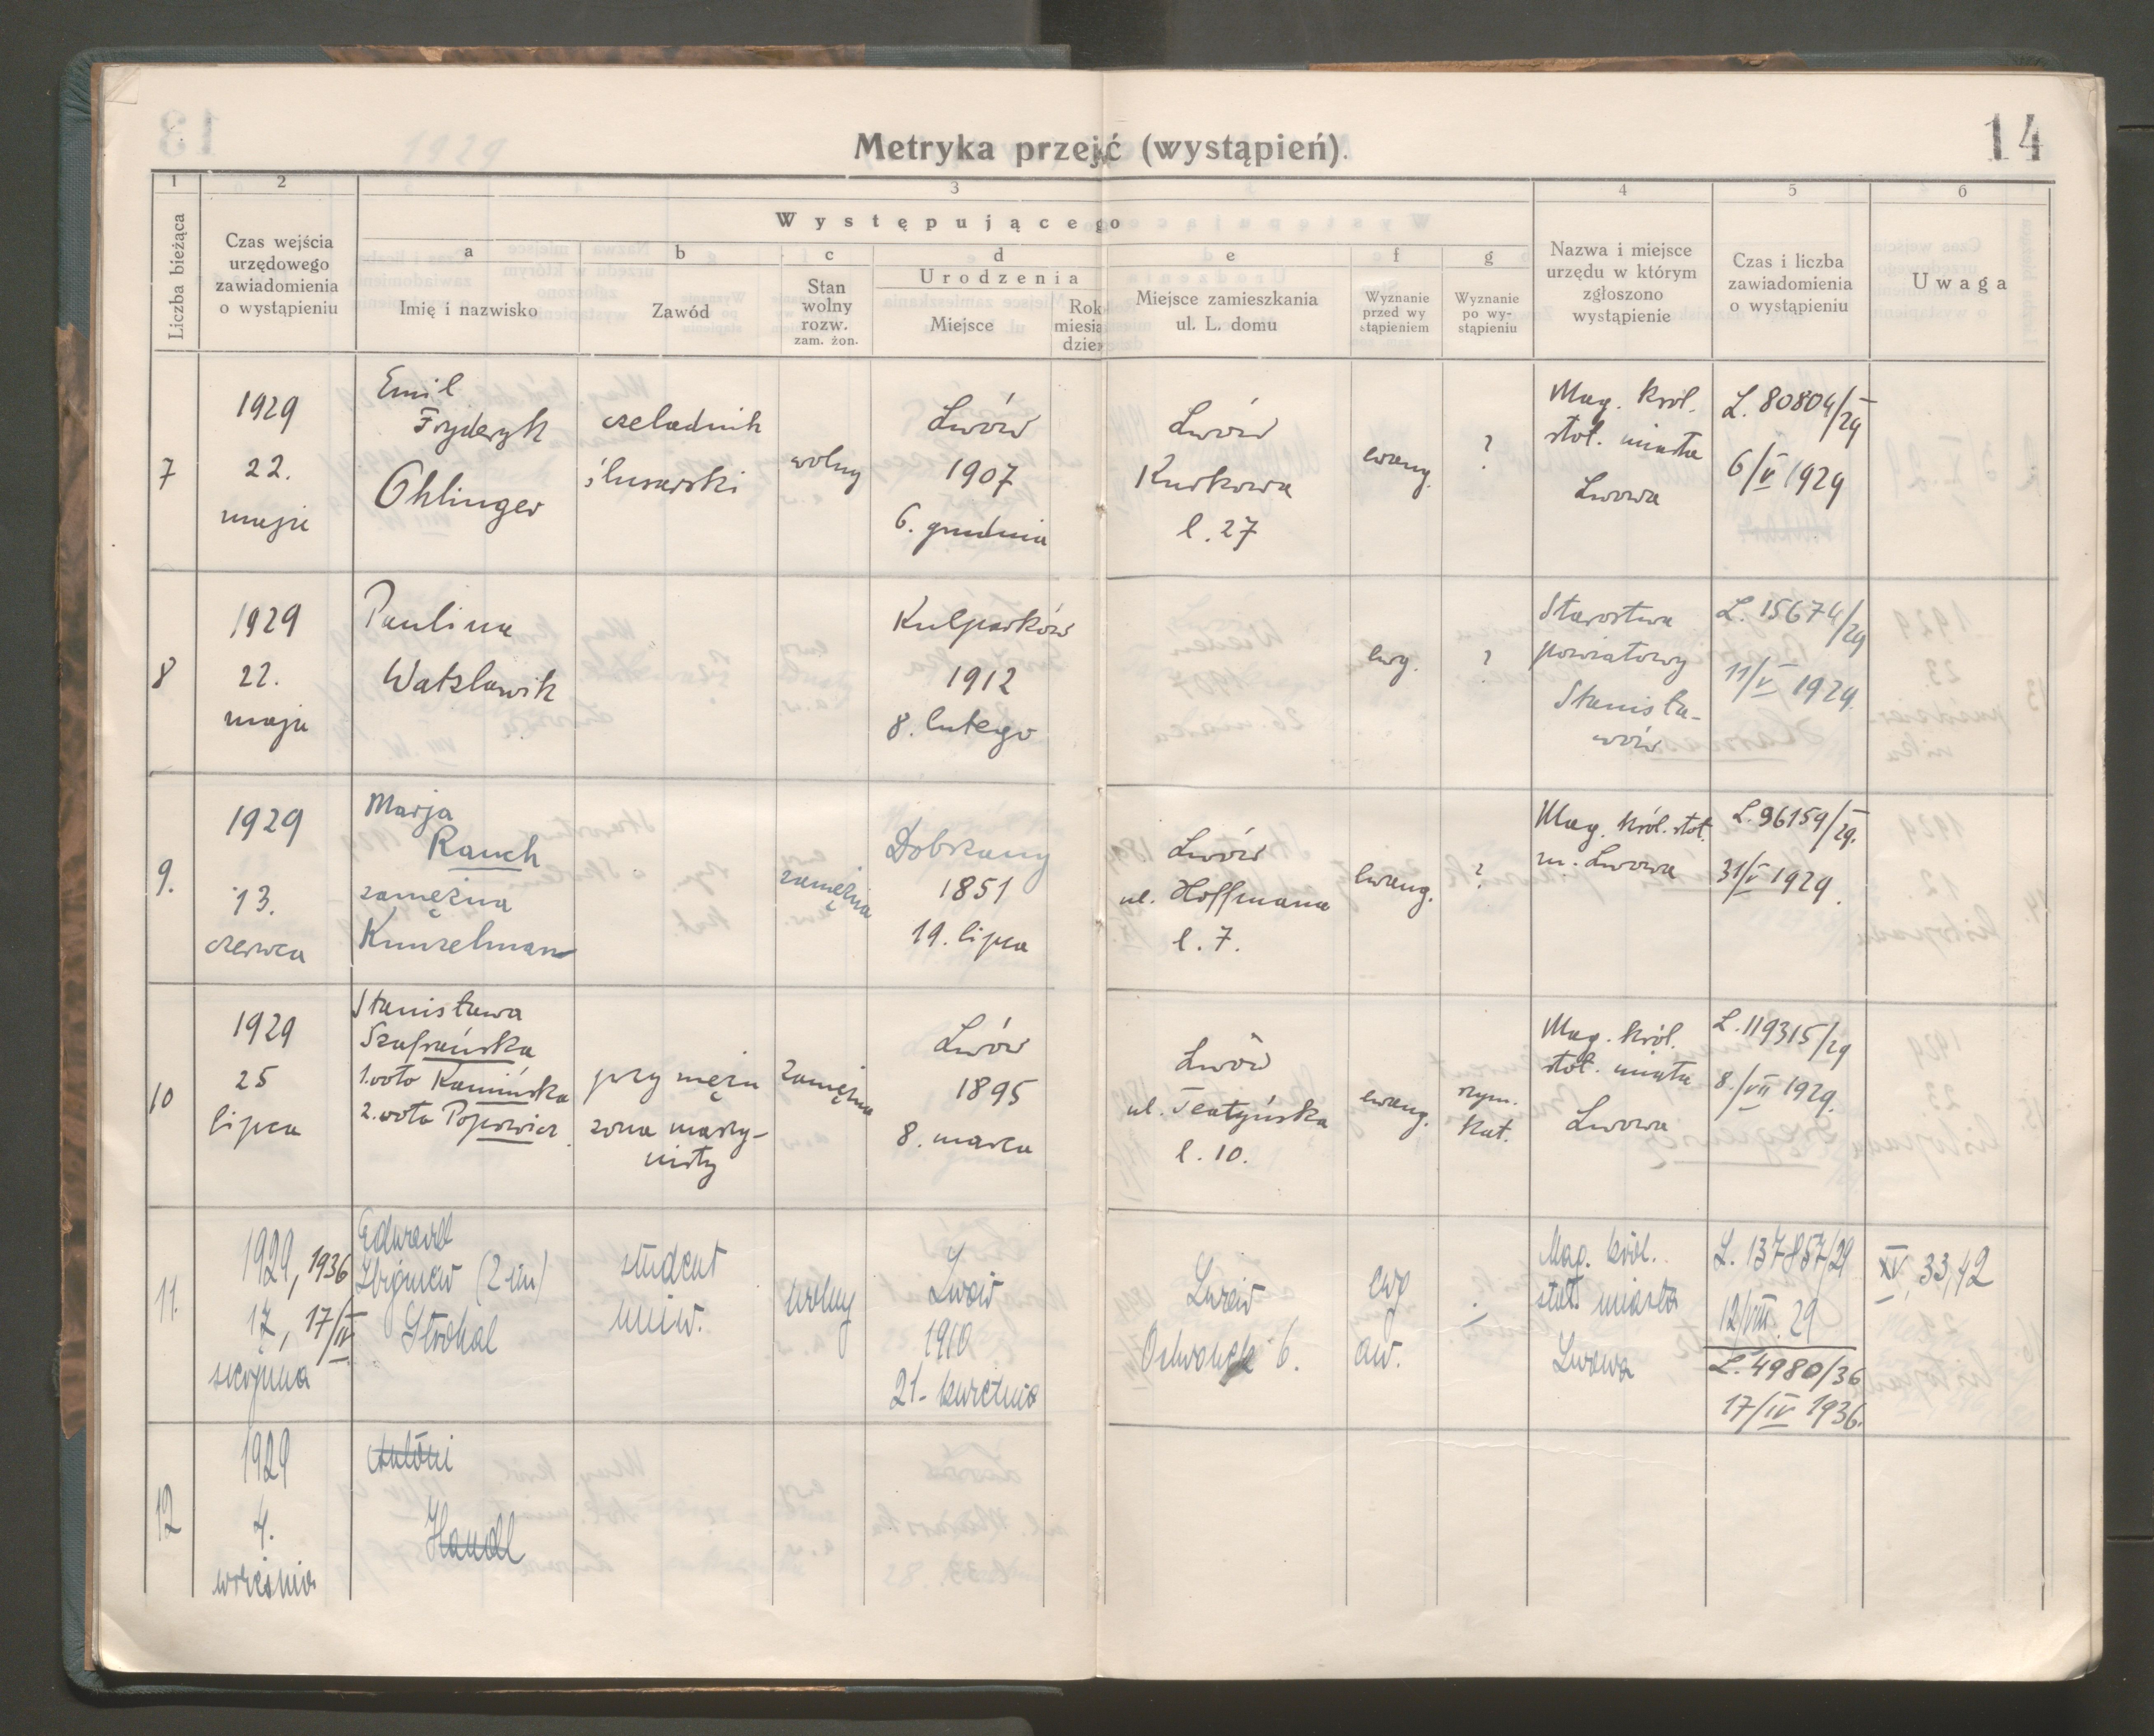 14
Metryka przejść (wystąpień).
1 2 3 4 5 6
Liczba bieżąca
Czas wejścia
urzędowego
zawiadomienia
o wystąpieniu
Występującego
a
Imię i nazwisko
b
Zawód
c
Stan
wolny
rozw.
zam. żon.
d
Urodzenia
Miejsce
Rok
miesią
dzie
e
Miejsce zamieszkania
ul. L. domu
f
Wyznanie
przed wy
stąpieniem
g
Wyznanie
po wy-
stąpieniu
Nazwa i miejsce
urzędu w którym
zgłoszono
wystąpienie
Czas i liczba
zawiadomienia
o wystąpieniu
Uwaga
7
1929
22.
maja
Emil
Fryderyk
Ohlinger
czeladnik
ślusarski
wolny
Lwów
1907
6. grudnia
Lwów
Kurkowa
l. 27
ewang.
?
Mag. król.
stoł. miasta
Lwowa
L. 80804/29
6/V 1929
8
1929
22.
maja
Paulina
Watzlawik
Kulparków
1912
8. lutego
ewg.
?
Starostwa
powiatowy
Stanisła-
wów
L. 15674/29
11/V 1929.
9.
1929
13.
czerwca
Marja
Rauch
zamężna
Kunzelmann
zamężna
Dobrzany
1851
19. lipca
Lwów
ul. Hoffmana
l. 7.
ewang.
?
Mag. król. stoł.
m. Lwowa
L. 96159/29.
31/V 1929.
10
1929
25
lipca
Stanisława
Szafrańska
1. voto Kamińska
2. voto Popowicz.
przy mężu
żona maszy-
nisty
zamężna
Lwów
1895
8. marca
Lwów
ul. Teatyńska
l. 10.
ewang.
rzym.
kat.
Mag. król.
stoł. miasta
Lwowa
L. 119315/29
8./VII 1929.
11.
1929, 1936
17, 17/IV
sierpnia
Edward
Zbigniew (2 im)
Strohal
student
uniw.
wolny
Lwów
1910
21. kwietnia
Lwów
6.
ewg
aw.
Mag. król.
stoł. miasta
Lwowa
L. 137857/29
12/VIII. 29
L. 4980/36
17/IV 1936.
XV, 33,42
12
1929
4.
września
Antoni
Handl